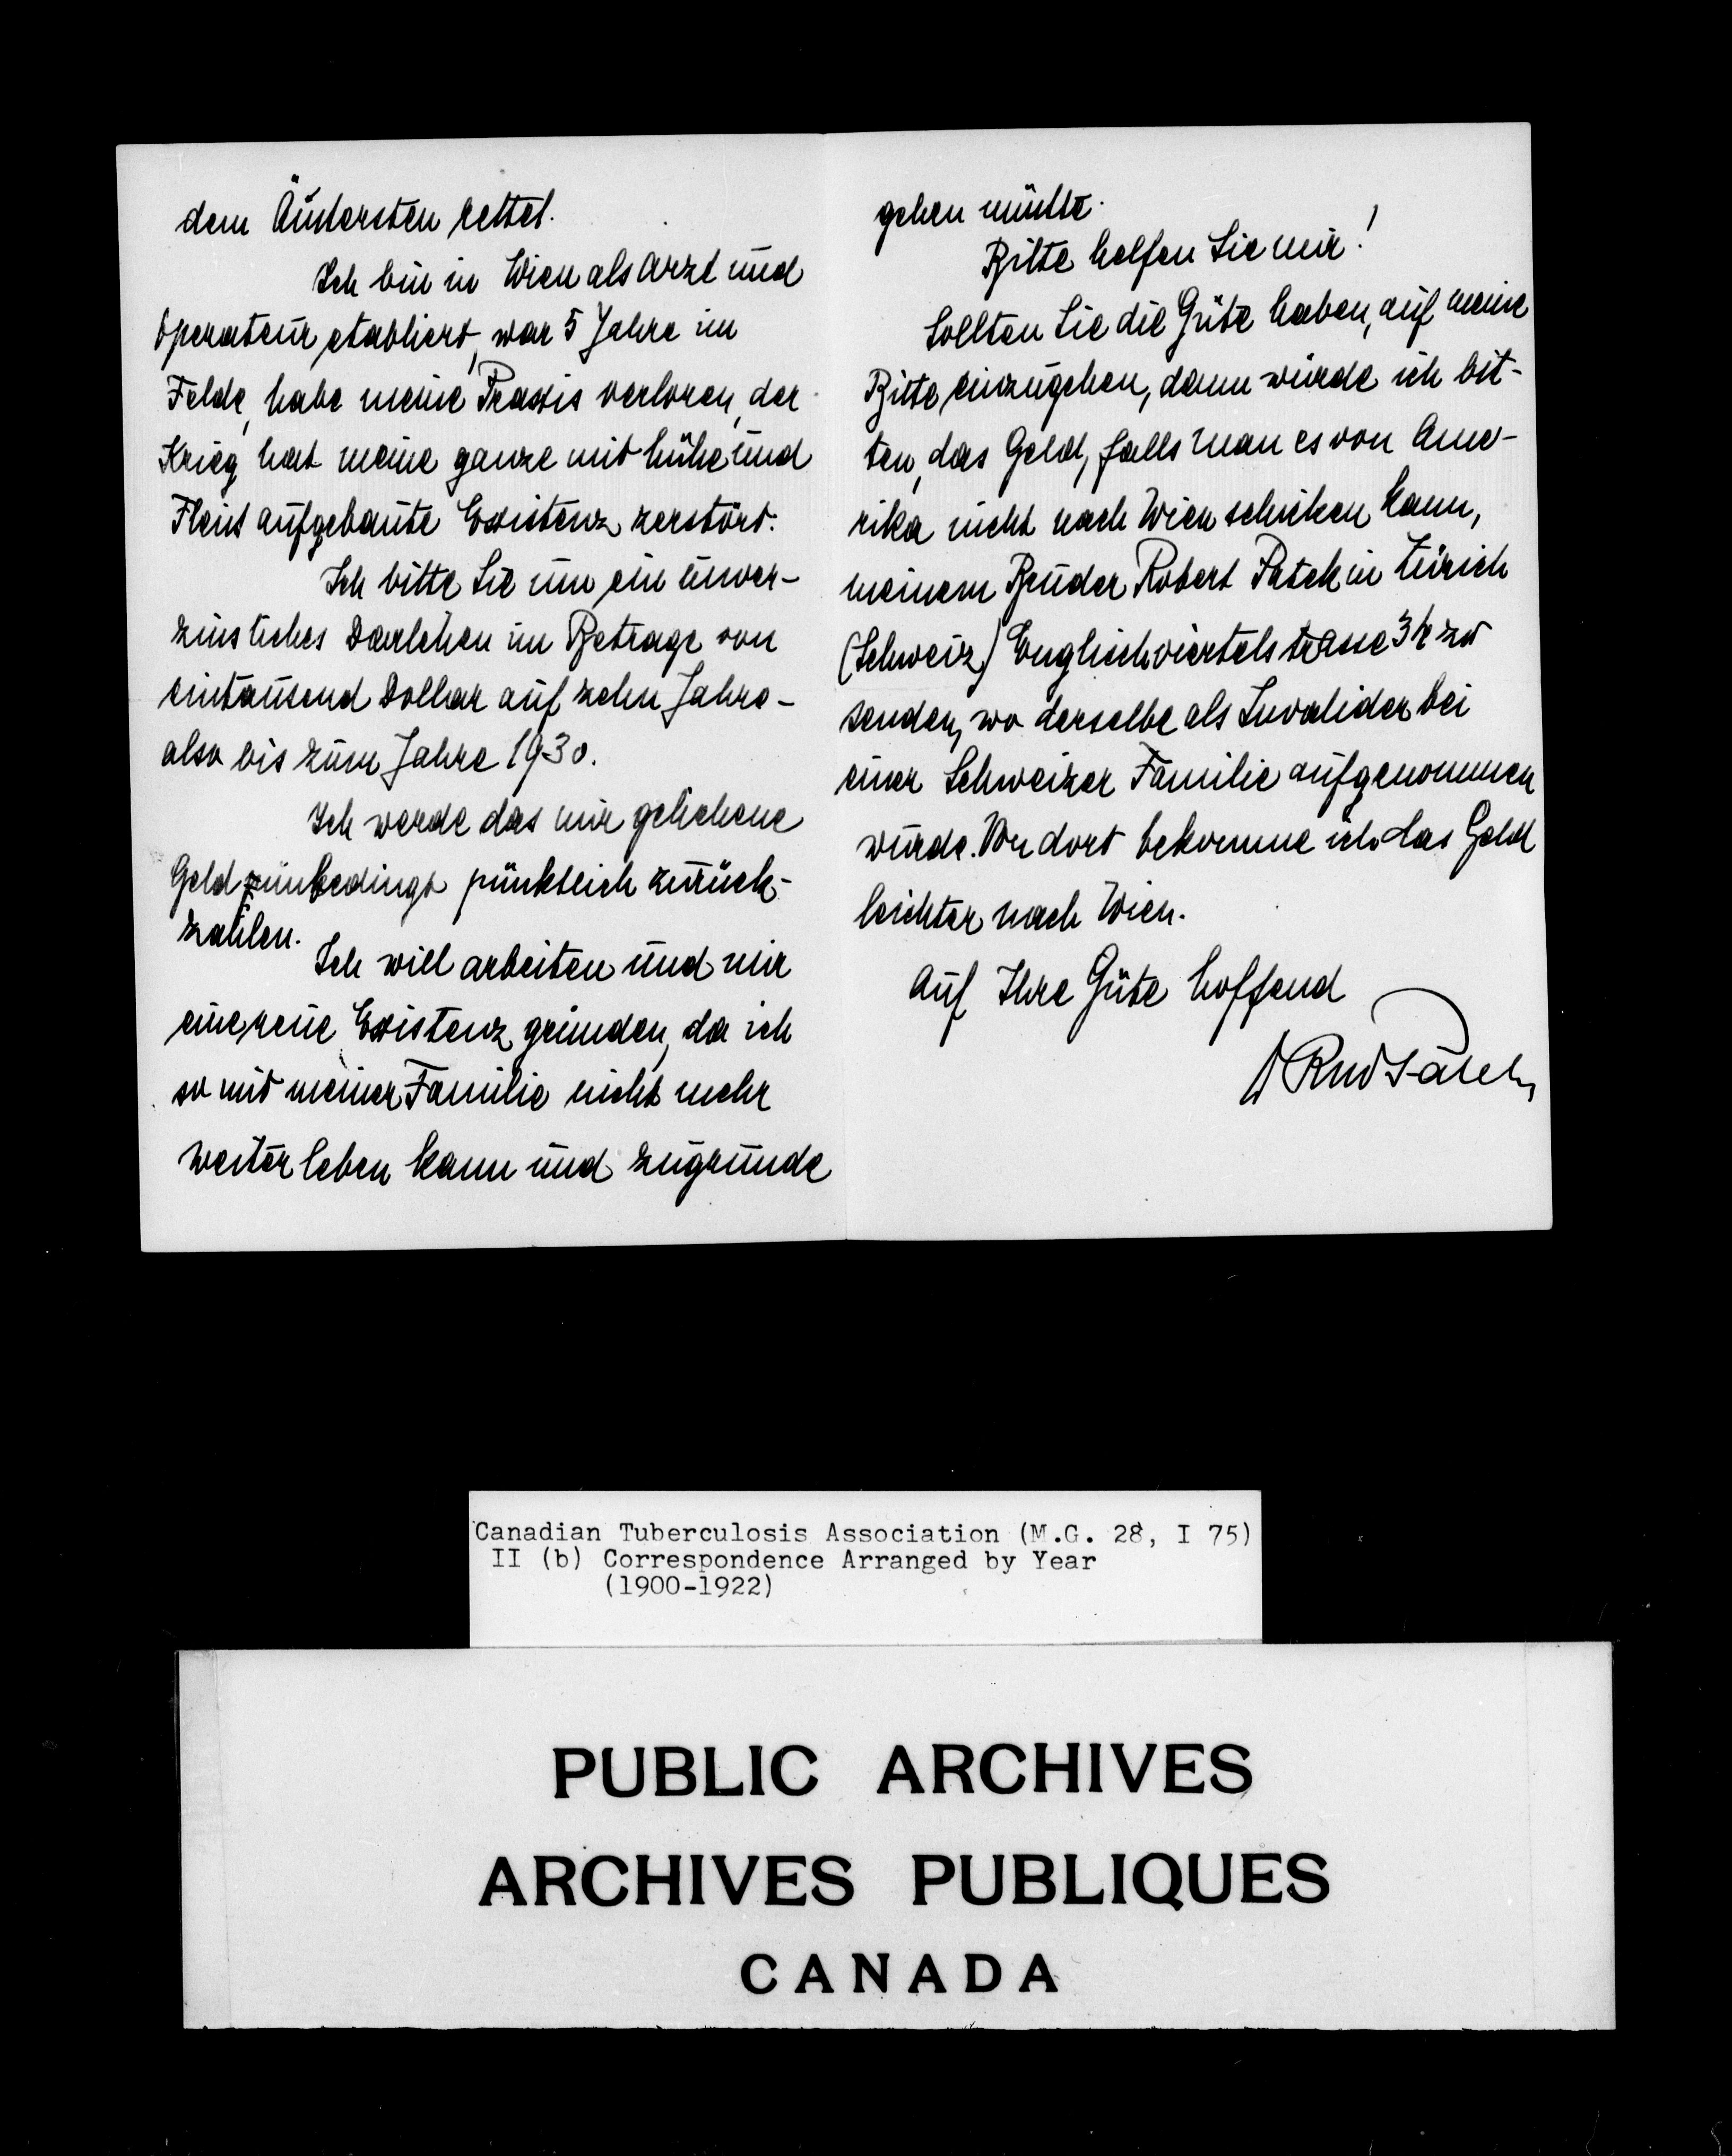 dem Äußersten rettet.
Ich bin in Wien als Arzt und
Operateur etabliert, war 5 Jahre im
Felde, habe meine Praxis verloren, der
Krieg hat meine ganze mit Mühe und
Fleiß aufgebaute Existenz zerstört.
Ich bitte Sie um ein unver-
zinsliches Darlehen im Betrage von
eintausend Dollar auf zehn Jahre -
also bis zum Jahre 1930.
Ich werde das mir geliehene
Geld unbedingt pünktlich zurück-
zahlen.
Ich will arbeiten und mir
eine neue Existenz gründen, da ich
so mit meiner Familie nicht mehr
weiter leben kann und zugrunde
gehen müßte.
Bitte helfen Sie mir!
Sollten Sie die Güte haben, auf meine
Bitte einzugehen, dann würde ich bit-
ten, das Geld, falls man es von Ame-
rika nicht nach Wien schicken kann,
meinem Bruder Robert Patek in Zürich
(Schweiz) Englischviertelstrasse zu
senden, wo derselbe als Invalider bei
einer Schweizer Familie aufgenommen
wurde. Von dort bekomme ich das Geld
leichter nach Wien.
Auf Ihre Güte hoffend
Canadian Tuberculosis Association (M.G. 28, I 75)
II (b) Correspondence Arranged by Year
(1900-1922)
PUBLIC ARCHIVES
ARCHIVES PUBLIQUES
CANADA